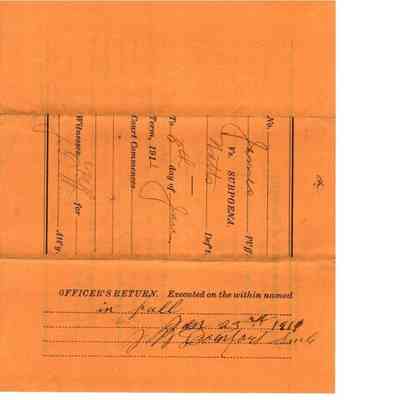 No.
James Pl'ff.
Vs. SUBPOENA.
Watts Def't.
To 8th day of Jan
Term, 191
Court Commences
Witnesses for
Att'y.
OFFICER'S RETURN. Executed on the within named
in full
23rd 1910